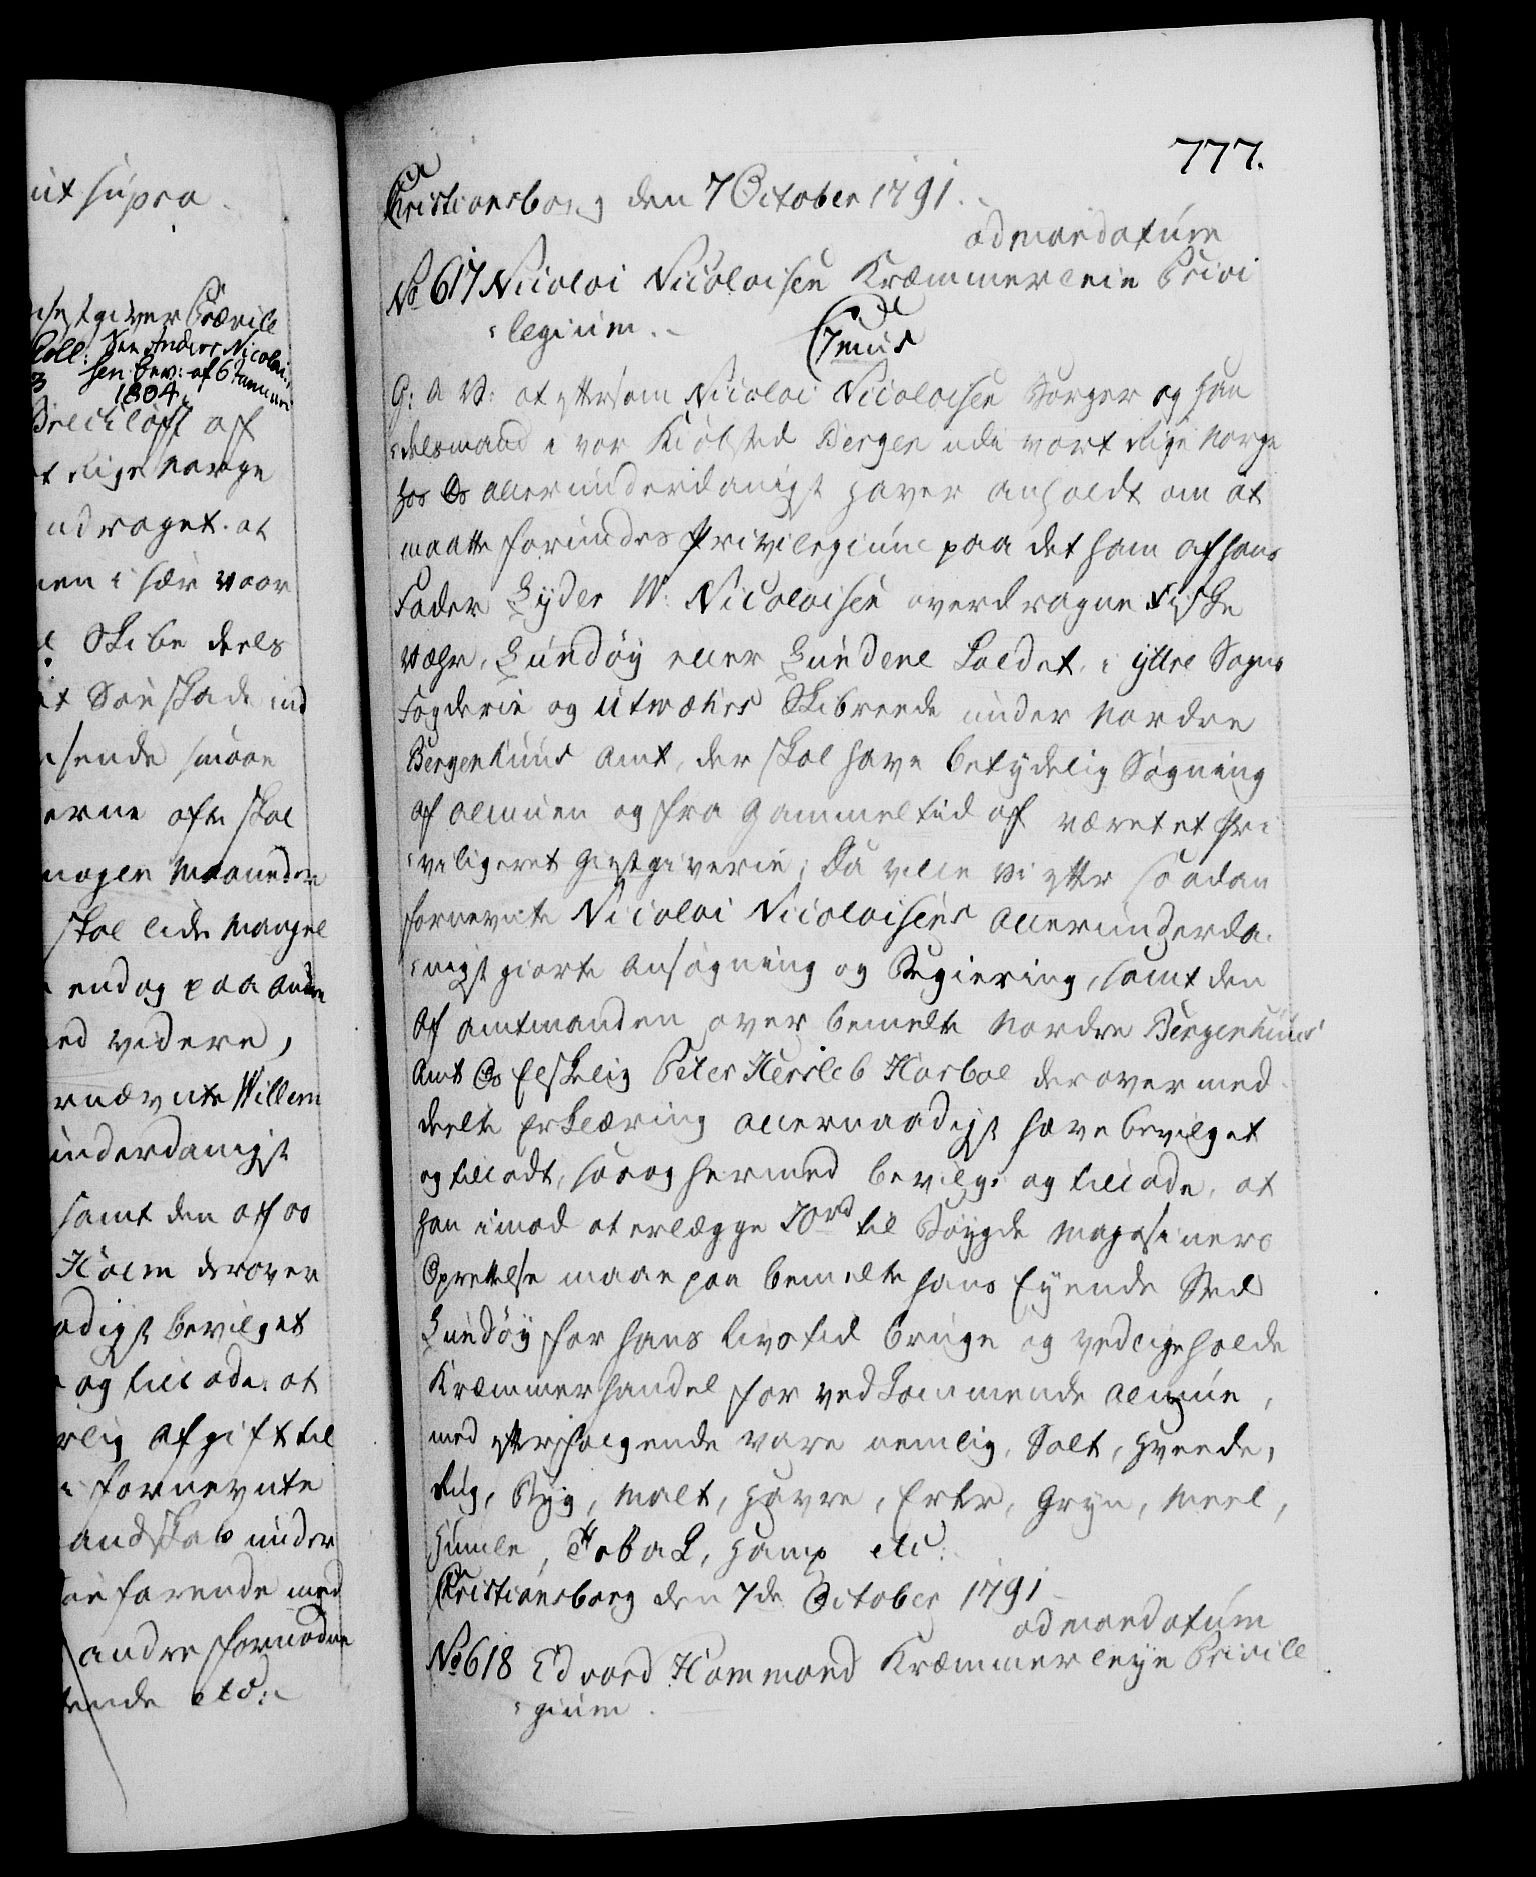 ut supra
giver Prævile
Coll: See Anders Nicolai
sen bev: af 6 Januari
1804.
af
t Rige Norge
udraget. at
men i sær naar
Skibe deels
t Søe skade ind
sende smaae
erne ofte skal
nogen Maaneder
skal lide Mangel
endog paa andre
ed videre,
rnævnte Willem
underdanigst
samt den af os
Holm derover
adigst bevilget
og tillade: at
rlig Afgift til
fornevnte
andskab under
farende med
andre fornødne
ende etc:
777.
Christiansborg den 7 October 1791.
ad mandatum
No 617 Nicolai Nicolaisen Kræmmerleie Privi
legium.
Genus
G: A V: at eftersom Nicolai Nicolaisen Borger og Han
delsmand i vor Kiøbsted Bergen udi vort Rige Norge
hos Os allerunderdanigst haver anholdt om at
maatte forundes Privilegium paa det ham af hans
Fader Lyder W: Nicolaisen overdragne Fiske
Væhr, Lundøy eller Lundene kaldet, i yttre Sogns
Fogderie og Utwæhrs Skibreede under Nordre
Bergenhuus Amt, der skal have betydelig Søgning
af Almuen og fra gammel tid af været et pri
viligeret Giestgiverie; Da ville Vi efter saadan
fornevnte Nicolai Nicolaisens allerunderda
nigst giorte Ansøgning og Begiering, samt den
af Amtmanden over bemelte Nordre Bergenhuus
Amt Os Elskelig Peter Hersleb Harboe derover med
deelte Erklæring allernaadigst have bevilget
og tilladt, saa og hermed bevilge og tillade, at
han imod at erlægge 10 rd til Bøygde Magasiners
Oprettelse maae paa bemelte hans Eyende Sted
Lundøy for hans livstid bruge og vedligeholde
Kræmmerhandel for vedkommende Almue,
med efterfølgende vare nemlig, Salt, Hveede,
Rug, Byg, Malt, Havre, Erter, Gryn, Meel,
Humle, Toback, Hamp etc:
Christiansborg den 7de October 1791
ad mandatum
No 618 Edvard Hammond Kræmmerleye Privile
gium.